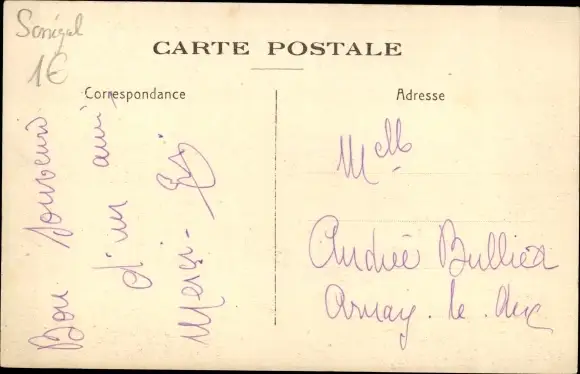 Sénégal
1€
CARTE POSTALE
Correspondance
Adresse
Bon Souvenir
d'un ami,
Merci -
Melle
Andrée Bullier
Arnay. le. Duc